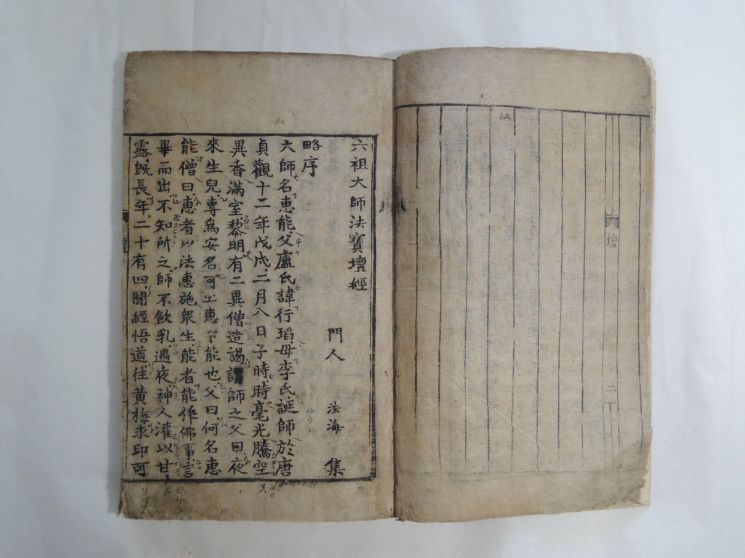 六祖大師法寶壇經
門人 法海 集
略序
大師名惠能父盧氏諱行瑫母李氏誕師於唐
貞觀十二年戊戌二月八日子時時毫光騰空
異香滿室黎明有二異僧造謁師之父曰夜
來生兒專爲安名可上惠下能也父曰何名惠
能僧曰惠者以法惠施衆生能者能作佛事言
畢而出不知所之師不飮乳遇夜神人灌以甘
露旣長年二十有四聞經悟道往黃梅求印可